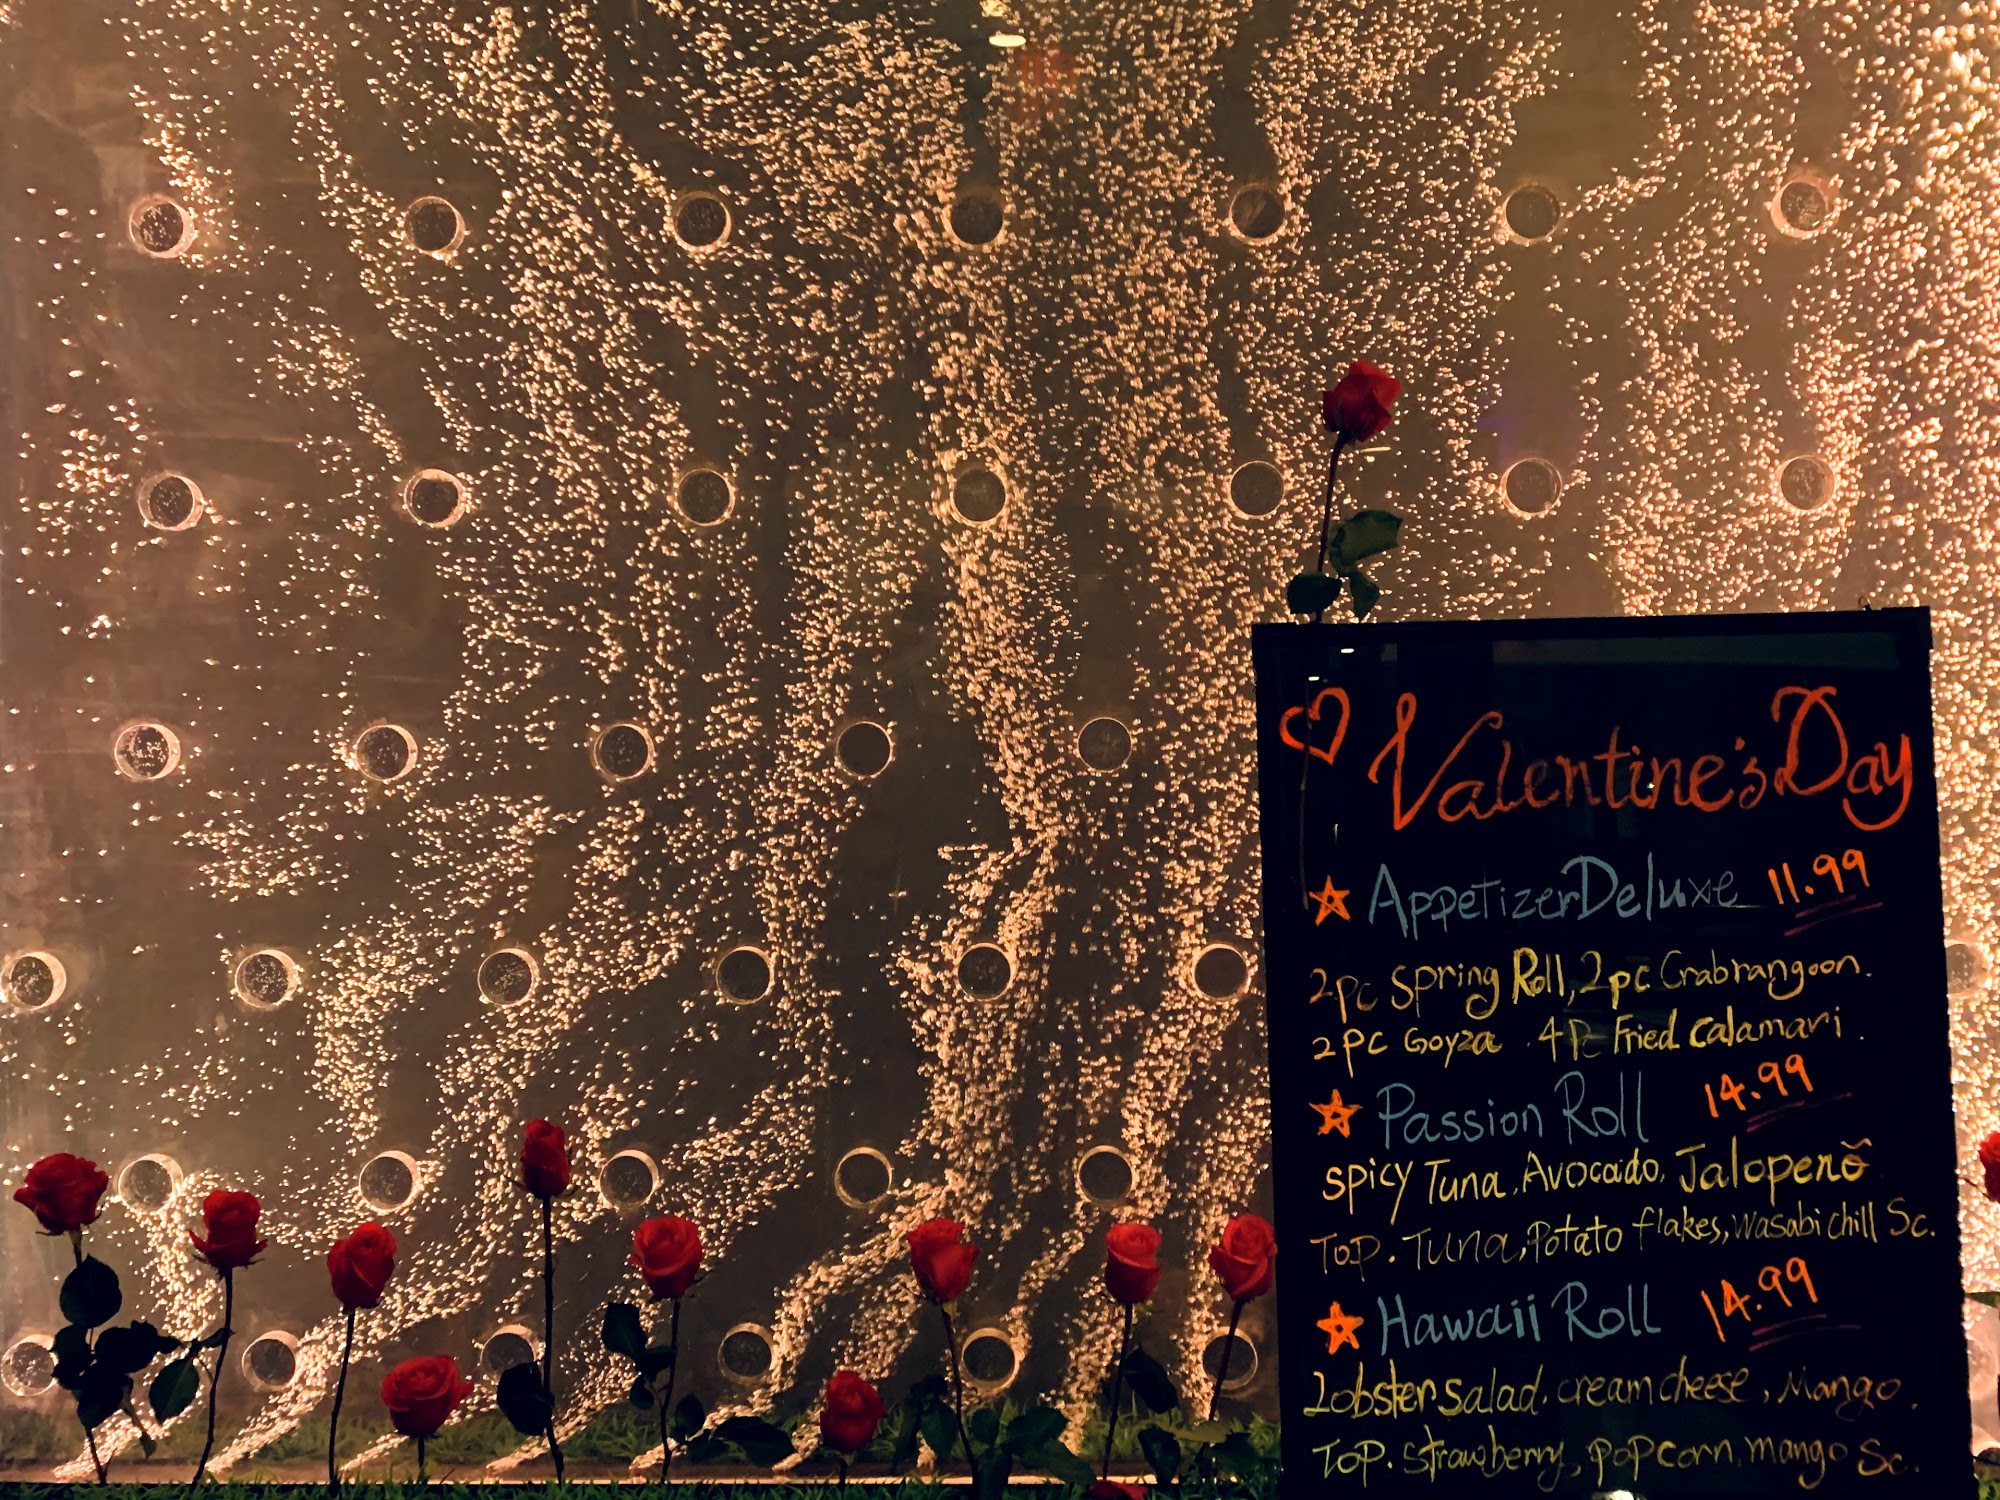 Valentine's Day
Appetizer Deluxe 11.99
2pc Spring Roll, 2pc Crabrangoon.
2pc Goyza 4pc Fried Calamari.
Passion Roll 14.99
Spicy Tuna, Avocado, Jalopenõ
Top. Tuna, Potato flakes, Wasabi chill Sc.
Hawaii Roll 14.99
Lobster salad, cream cheese, Mango.
Top. Strawberry, popcorn, mango Sc.